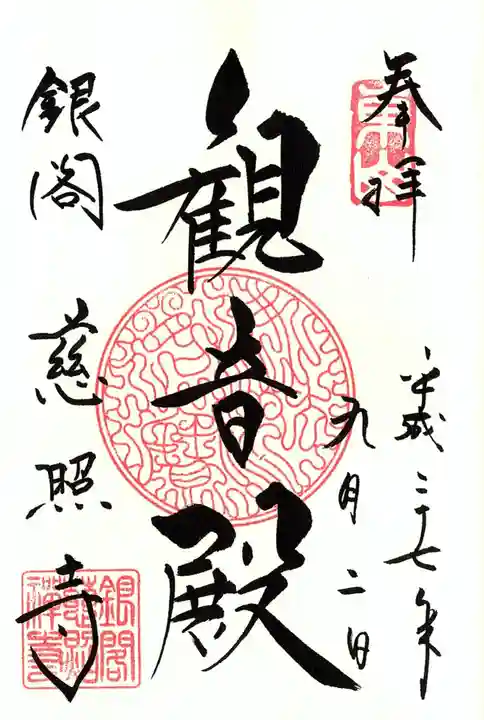 奉拝
平成二十七年
九月二日
観音殿
銀閣 慈照寺
銀閣
慈照
禅寺